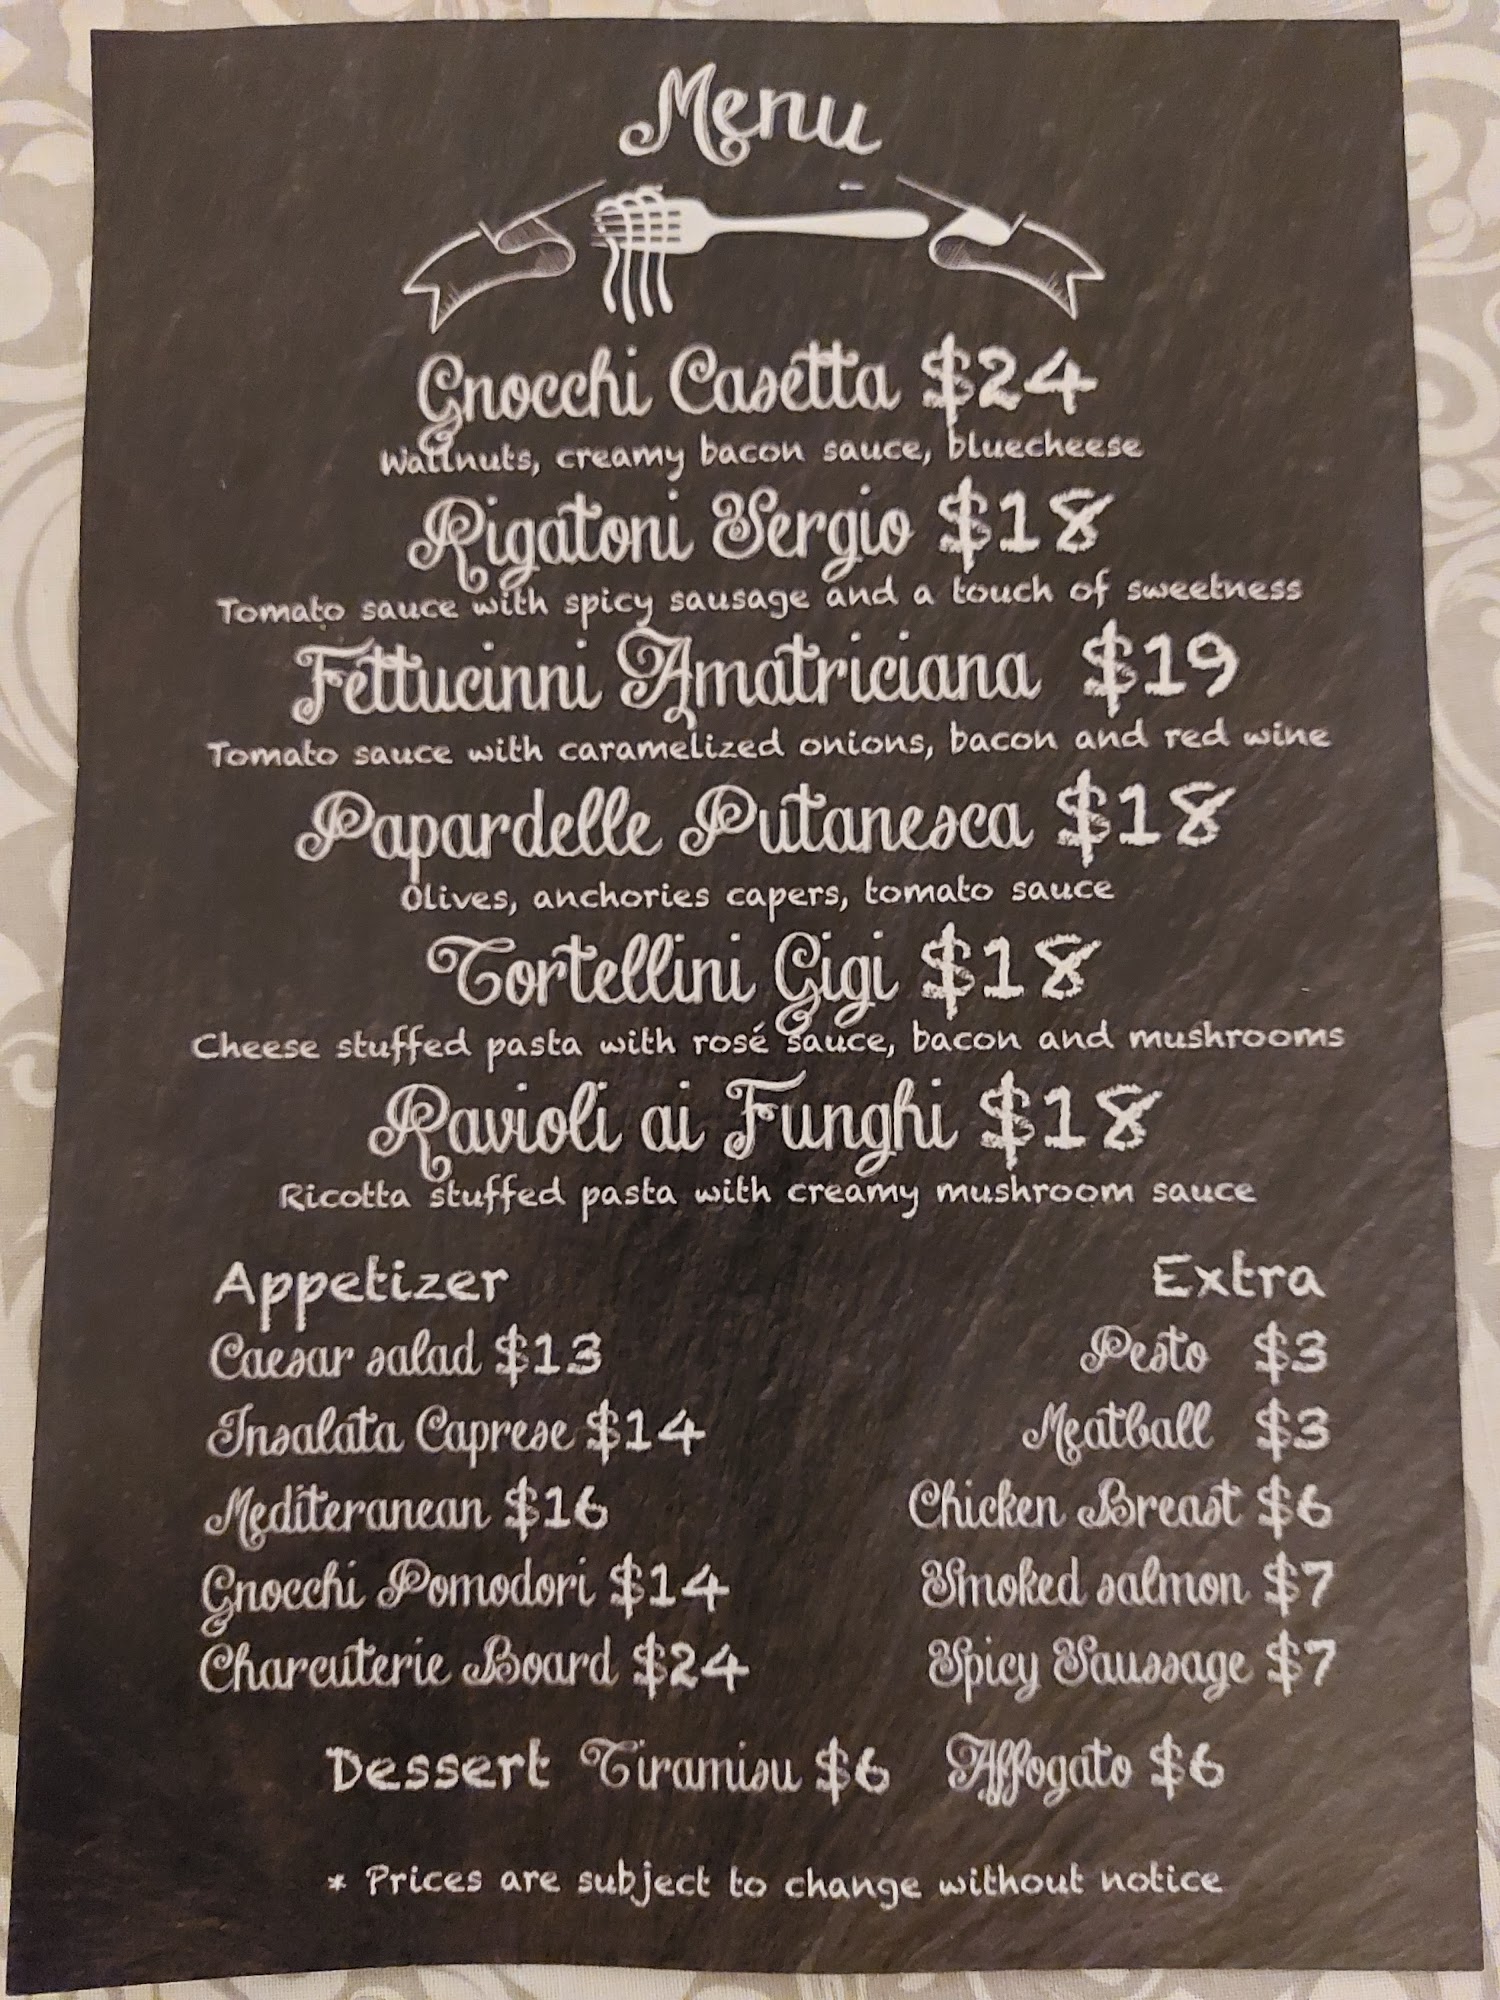 Menu
Gnocchi Casetta $24
Wallnuts, creamy bacon sauce, bluecheese
Rigatoni Sergio $18
Tomato sauce with spicy sausage and a touch of sweetness
Fettucinni Amatriciana $19
Tomato sauce with caramelized onions, bacon and red wine
Papardelle Putanesca $18
Olives, anchories capers, tomato sauce
Tortellini Gigi $18
Cheese stuffed pasta with rosé sauce, bacon and mushrooms
Ravioli ai Funghi $18
Ricotta stuffed pasta with creamy mushroom sauce
Appetizer
Caesar salad $13
Insalata Caprese $14
Mediteranean $16
Gnocchi Pomodori $14
Charcuterie Board $24
Extra
Pesto $3
Meatball $3
Chicken Breast $6
Smoked salmon $7
Spicy Saussage $7
Dessert Tiramisu $6 Affogato $6
* Prices are subject to change without notice